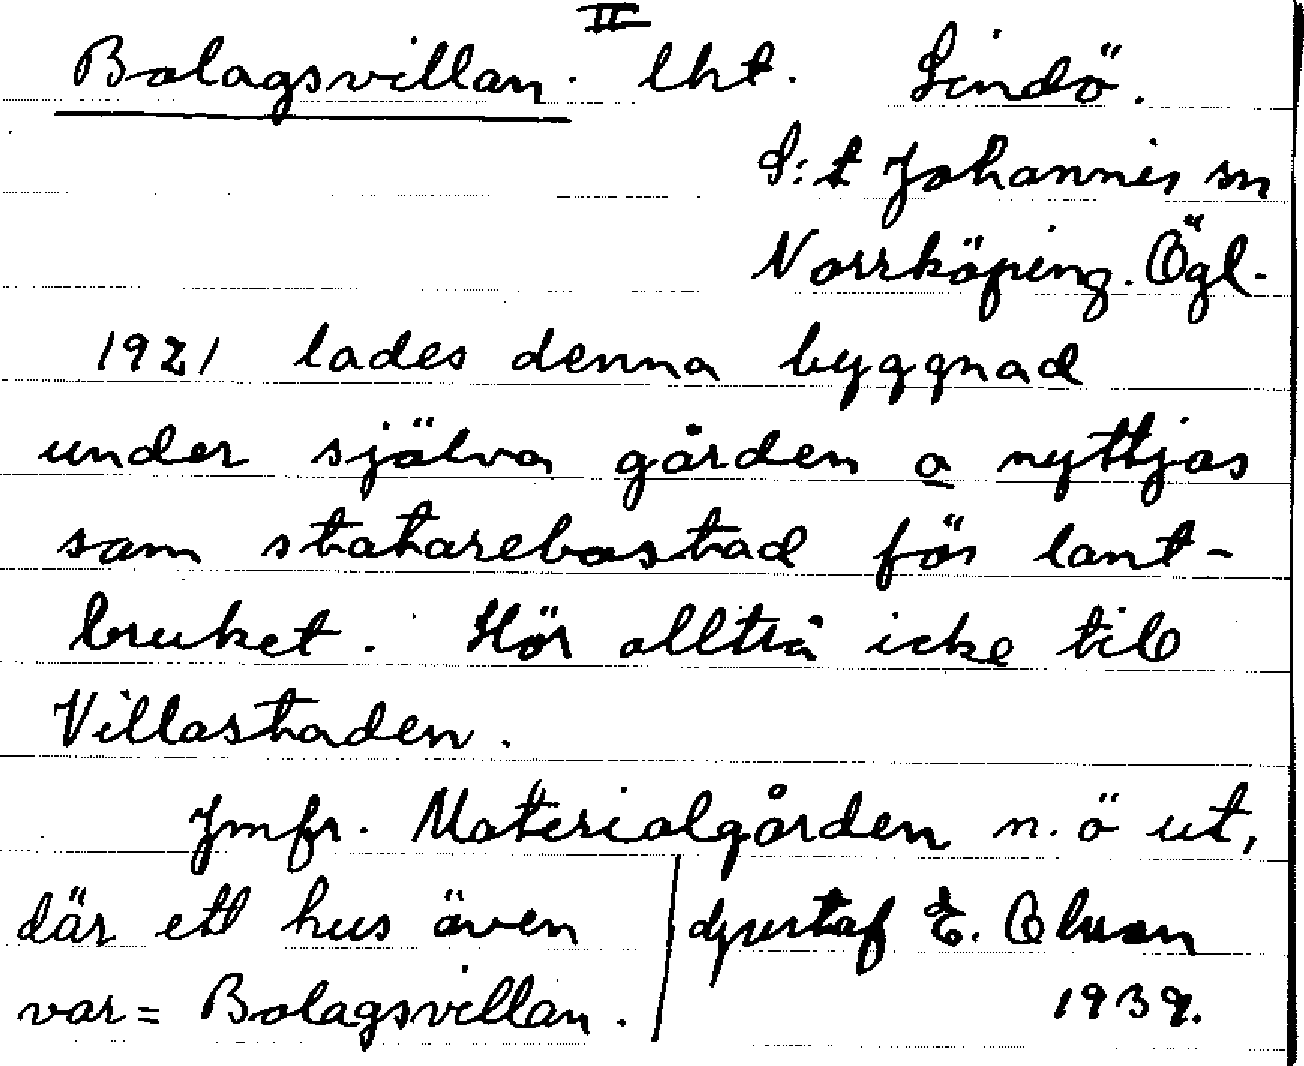 II
Bolagsvillan. lht. Lindö.
S:t Johannis sn
Norrköping. Ögl.
1921 lades denna byggnad
under själva gården o nyttjas
som statarebostad för lant-
bruket. Hör alltså icke till
Villastaden.
Jmfr. Materialgården n. ö ut,
där ett hus även
var = Bolagsvillan.
Gustaf E. Olsson
1939.